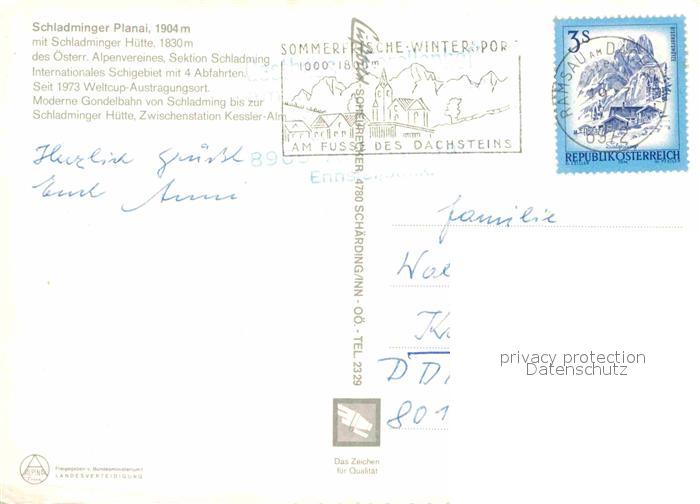 Schladminger Planai, 1904 m
mit Schladminger Hütte, 1830 m
des Österr. Alpenvereines, Sektion Schladming
Internationales Schigebiet mit 4 Abfahrten.
Seit 1973 Weltcup-Austragungsort.
Moderne Gondelbahn von Schladming bis zur
Schladminger Hütte, Zwischenstation Kessler-Alm
Herzlich grüßt
Anni
SOMMERFRISCHE-WINTERSPOR
1000 1800
AM FUSSE DES DACHSTEINS
SCHÄRDING/INN - OÖ. - TEL. 2329
4780
RAMSAU AM D
3s
REPUBLIK ÖSTERREICH
Familie
DD
801
privacy protection
Datenschutz
Das Zeichen
für Qualität
Freigegeben v. Bundesministerium f.
LANDESVERTEIDIGUNG